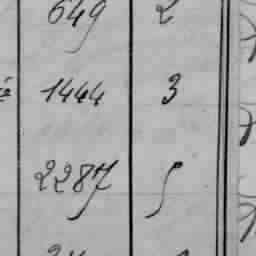 649 2
1444 3
2287 5